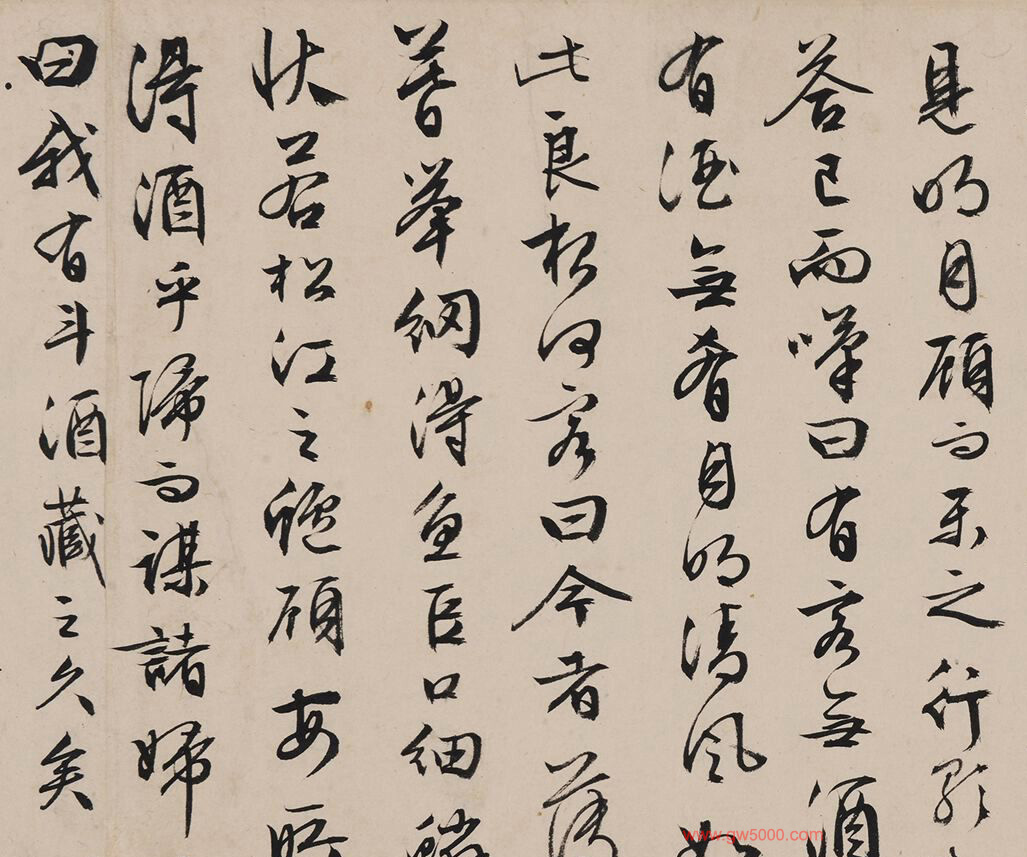 見明月顧而樂之行歌
答已而嘆曰有客無酒
有酒無肴月明清風如
此良夜何客曰今者薄
暮舉網得魚巨口細鱗
狀若松江之鱸顧安所
得酒乎歸而謀諸婦
曰我有斗酒藏之久矣
www.gw5000.com